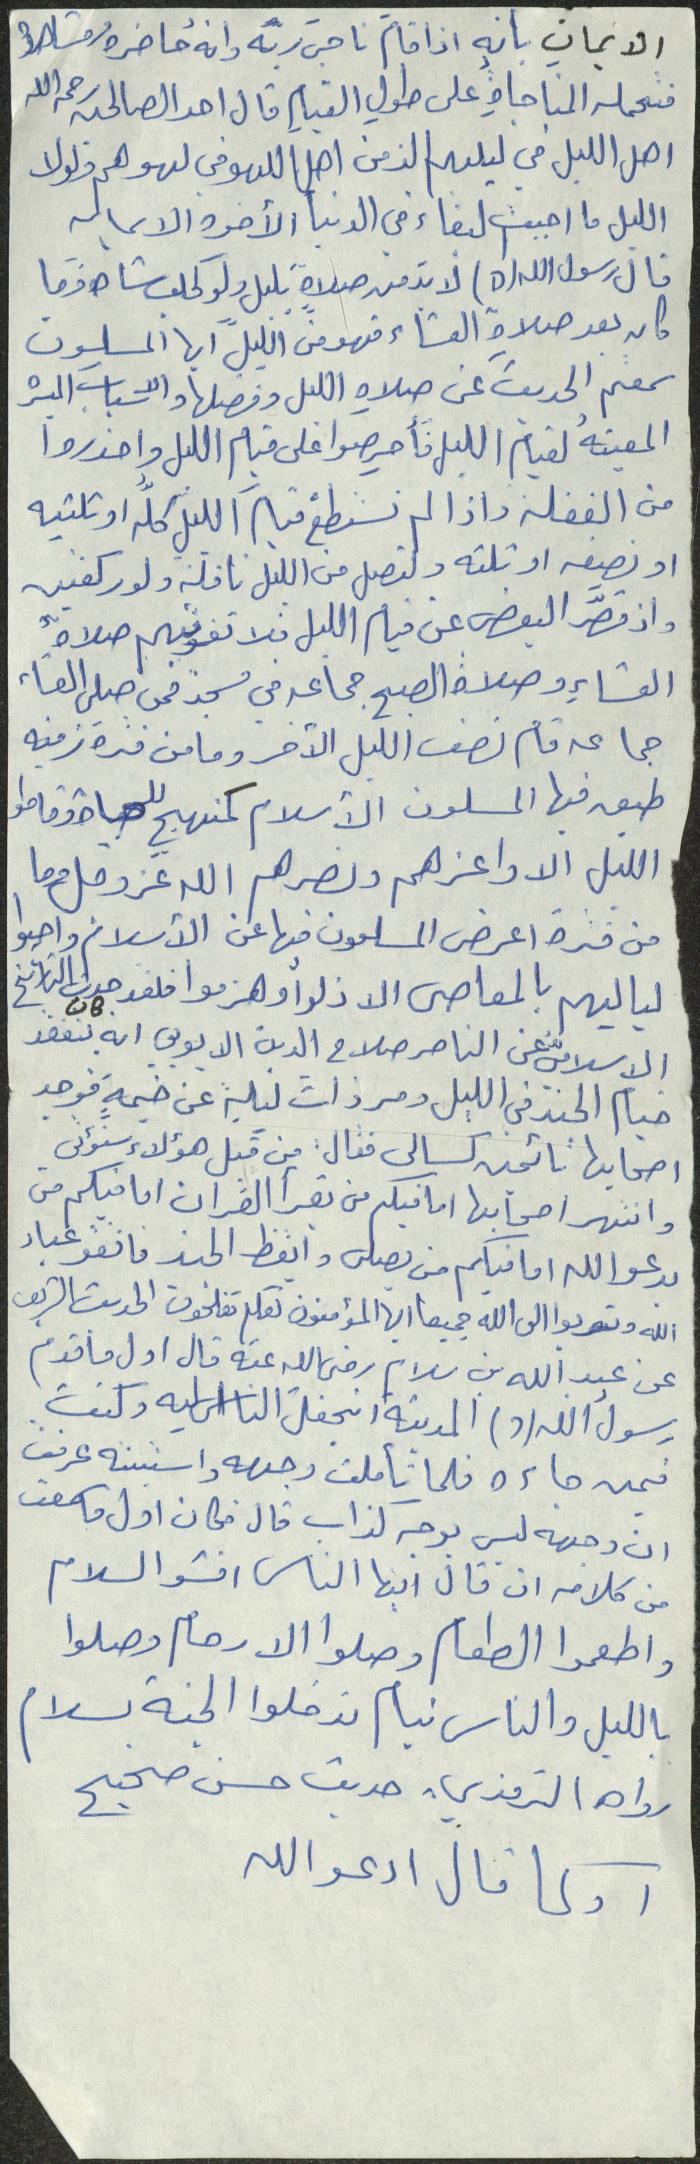 الايمان بانه اذا قام ناجى ربّه وانه حاضره ومشاهده
فتحمله المناجاة على طول القيام قال احد الصالحين رحمه الله
اهل الليل في ليلهم الذ من اهل اللهو في لهوهم ولولا
الليل ما احببت البقاء في الدنيا الأخوة الايمانيه
قال رسول الله (ص) لا بد من صلاةٍ بليل ولو كحلب شاه وما
كان بعد صلاة العشاء فهو من الليل ايها المسلمون
سمعتم الحديث عن صلاه الليل وفضلها والاسباب الميسره
المعينهُ لقيام الليل فأحرصوا على قيام الليل واحذروا
من الغفله واذا لم تستطع قيام الليل كلّه او ثلثيه
او نصفه او ثلثه ولتصل من الليل نافلة ولو ركعتين
واذ قصَّر البعض عن قيام الليل فلا تفوتهم صلاةُ
العشاءِ وصلاة الصبح جماعه في مسجد فمن صلى العشاء
جماعه قام نصف الليل الآخر وما من فترة زمنيه
طبق فيها المسلمون الأسلام كمنهج للحياة وقاموا
الليل الا واعزهم ونصرهم الله عز وجل وما
من فترة اعرض المسلمون فيها عن الأسلام واحيوا
لياليهم بالمعاصي الا ذلوا وهزموا فلقد حدث التاريخ
الاسلامي عن الناصر صلاح الدين الايوبي انه كان يتفقد
خيام الجند في الليل ومر ذات ليلة عن خيمةٍ فوجد
اصحابها نائمين كسالى فقال: من قبل هؤلاء سنؤتى
وانتهر اصحابها امافيكم من يقرأ القرآن امافيكم من
يدعو الله امافيكم من يصلي وايقظ الجند فاتقو عباد
الله وتوبوا الى الله جميعا ايها المؤمنون لعلكم تفلحون الحديث الشريف
عن عبد الله بن سلام رضي الله عنه قال اول ما قدم
رسول الله (ص) المدينة انجفل الناس اليه وكنت
فيمن جاءه فلما تأملت وجهه واستبنته عرفت
ان وجهه ليس بوجه كذاب قال فكان اول ما سمعت
من كلامه ان قال ايها الناس افشو السلام
واطعموا الطعام وصلوا الارحام وصلوا
بالليل والناس نيام تدخلوا الجنة بسلام
رواه الترمذي. حديث حسن صحيح
او كما قال ادعو الله